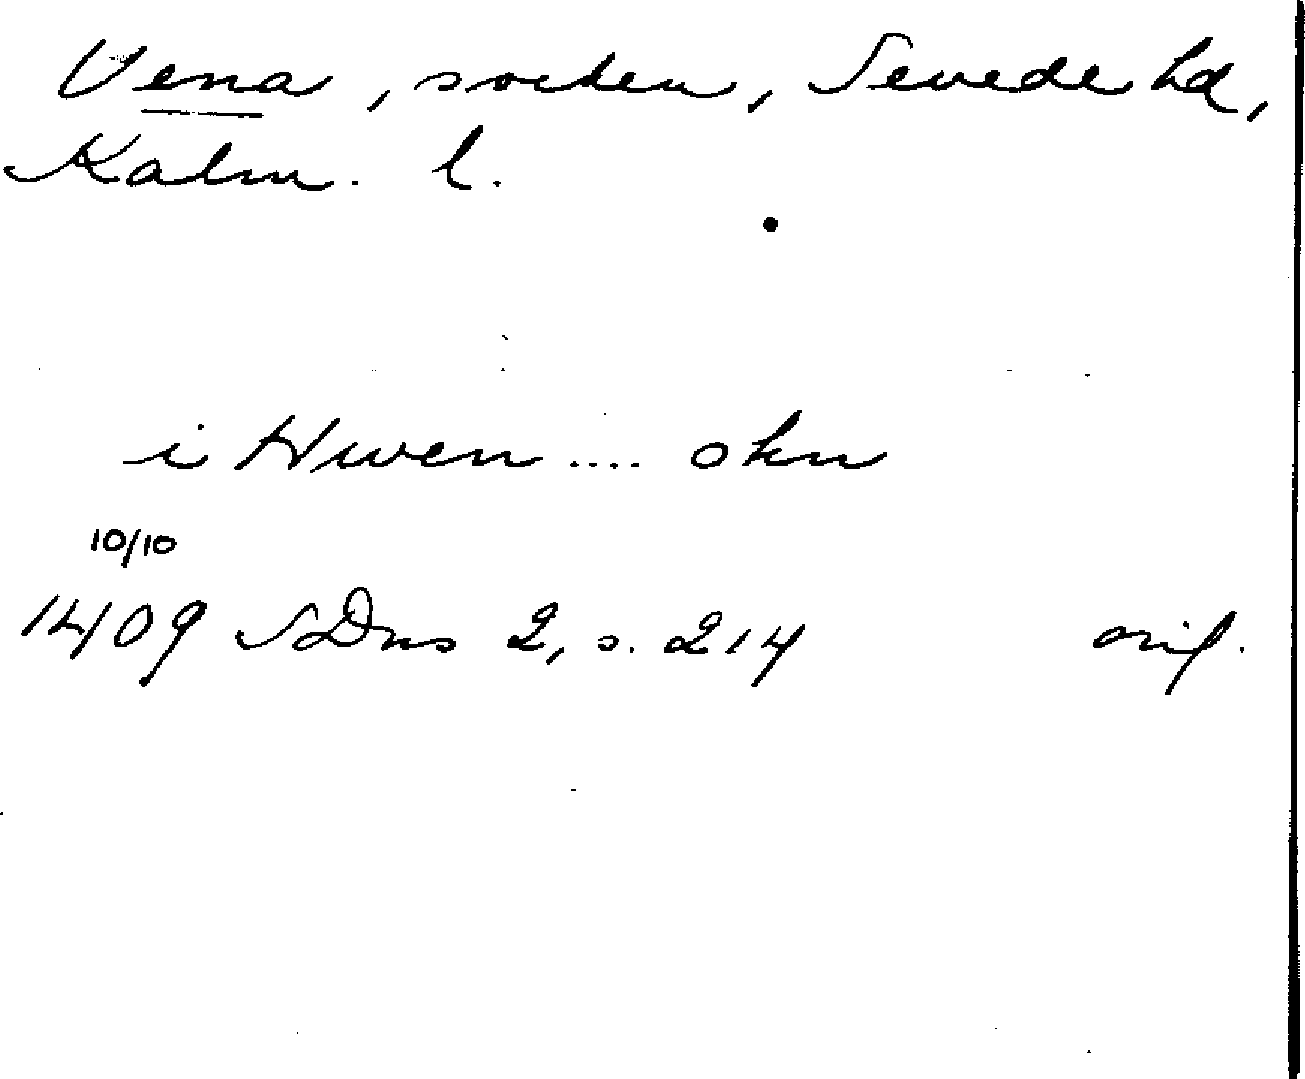 Vena, socken, Sevede hd,
Kalm. l.
i Hwen .... okn
10/10
1409 SDns 2, s. 214 orig.